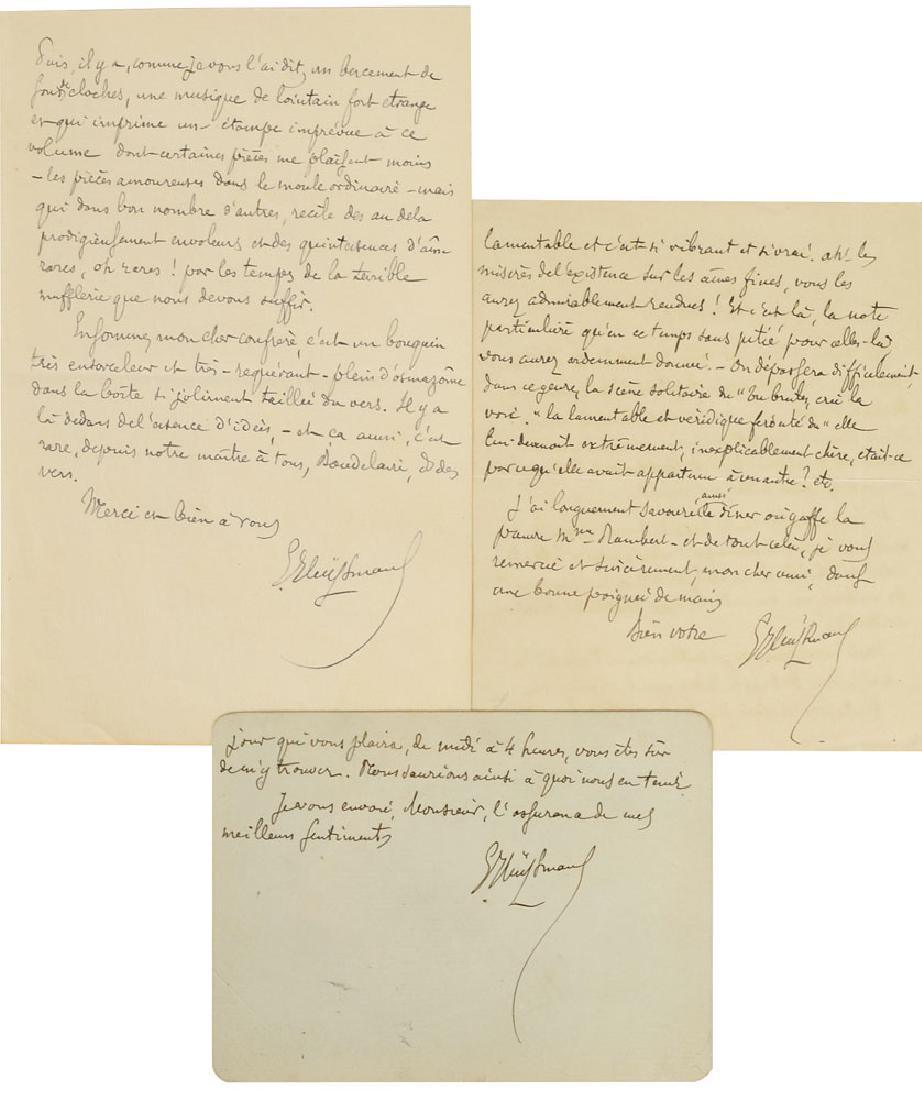 Puis, il y a, comme je vous l'ai dit, un bercement de
fonds de cloches, une musique de lointain fort étrange
et qui imprime un étampe imprévue à ce
volume dont certaines pièces me plaisent moins
- les pièces amoureuses dans le moule ordinaire - mais
qui dans bon nombre d'autres, recèle des au delà
prodigieusement envoleurs et des quintessences d'âme
rares, oh rares ! par les temps de la terrible
muflerie que nous devons suffir.
En somme, mon cher confrère c'est un bouquin
très ensorceleur et très-requérant - plein d'osmazôme
dans la boîte si joliment taillée du vers. Il y a
là dedans de l'essence d'idées, - et ça aussi, c'est
rare, depuis notre maître à tous, Baudelaire, et des
vers.
Merci et bien à vous
G Huÿsmans
lamentable et c'est si vibrant et si vrai ! ah ! les
misères de l'existence sur les âmes fines, vous les
aurez admirablement rendues ! Et c'est là, la note
particulière qu'en ce temps sans pitié pour elles-là,
vous aurez ardemment donnée. - On dépassera difficilement
dans ce genre, la scène solitaire du "tu brutes, crie la
voix," la lamentable et véridique féroité du "elle
lui devenait extrêmement, inexplicablement chère, était-ce
parce qu'elle avait appartenu à un autre ? etc.
J'ai longuement savouré aussi le dîner où gaffe la
pauvre Mme Rambert - et de tout cela, je vous
remercie et sincèrement, mon cher ami, dans
une bonne poignée de mains
Bien votre
G Huÿsmans
jour qui vous plaira, de midi à 4 heures, vous êtes sûr
de m'y trouver. Nous saurions ainsi à quoi nous en tenir.
Je vous envoie, Monsieur, l'assurance de mes
meilleurs sentiments
G Huÿsmans